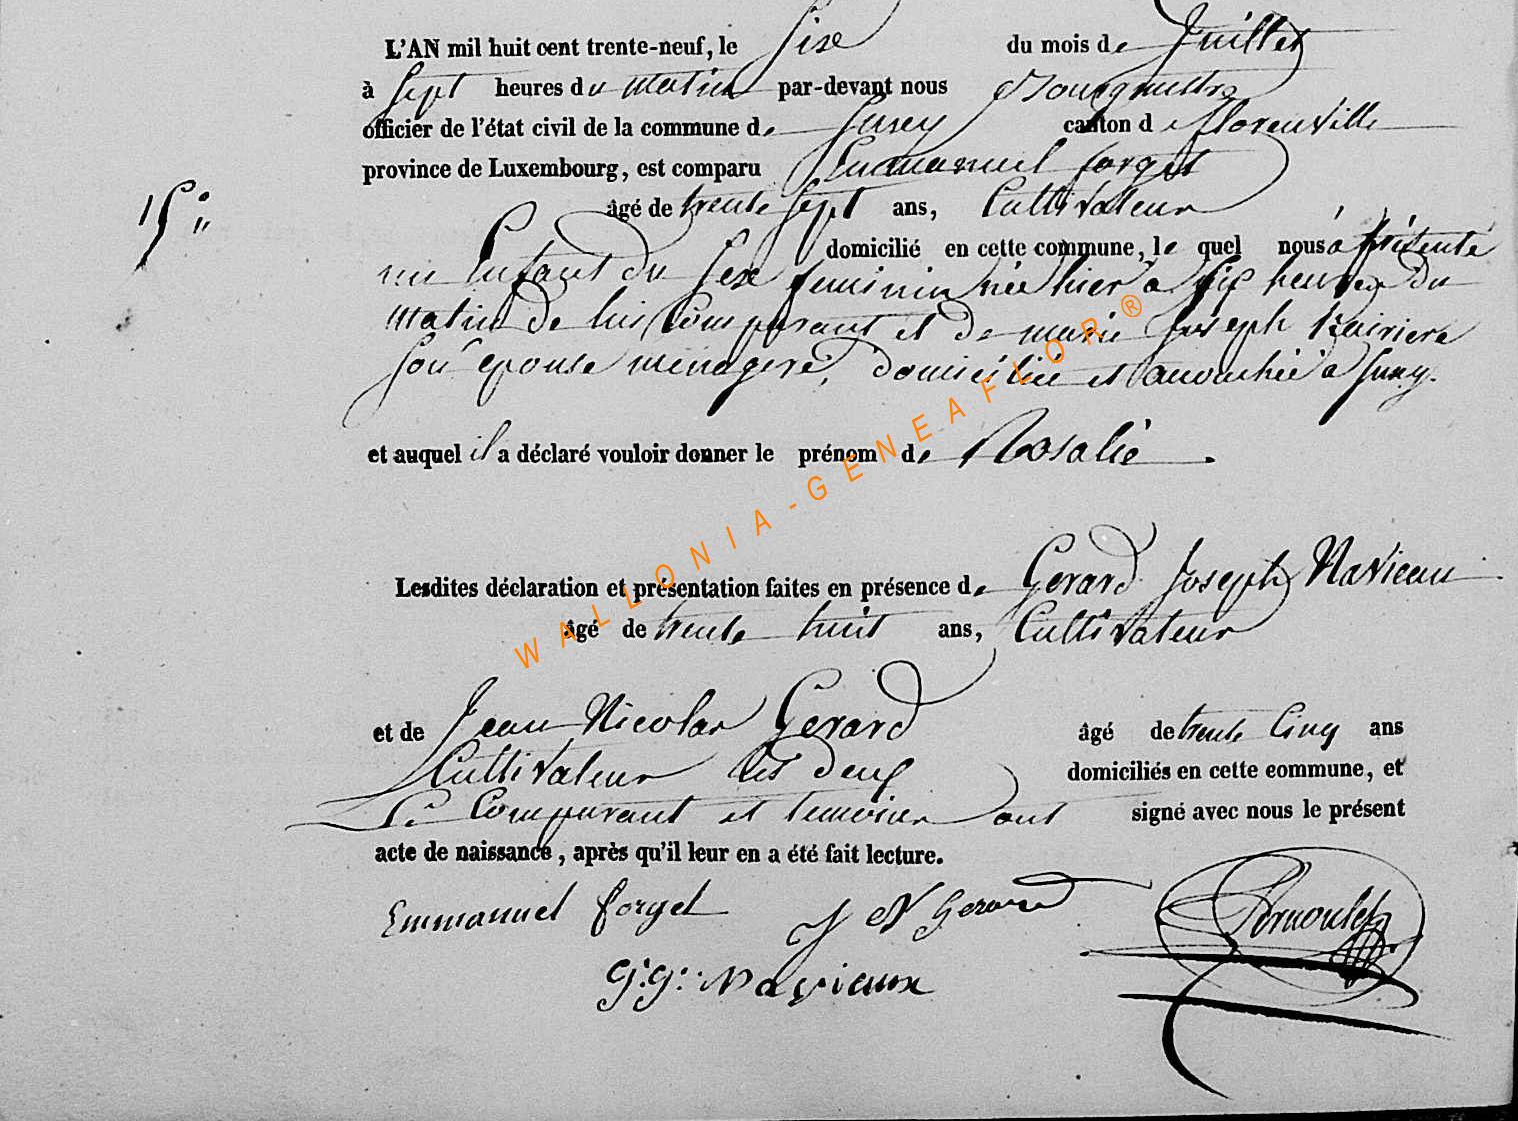 L'AN mil huit cent trente-neuf, le Six du mois de Juillet
à Sept heures du matin par-devant nous Bourgmestre
officier de l'état civil de la commune de Suxy canton de florenville
province de Luxembourg, est comparu Emmanuel forget
âgé de trente Sept ans, Cultivateur
15° domicilié en cette commune, le quel nous a présenté
un Enfant du Sexe feminin née hier à Six heures du
matin de lui Comparant et de marie Joseph
Son épouse menagere, domiciliée et accouchée à Suxy.
et auquel il a déclaré vouloir donner le prénom de Rosalie.
WALLONIA-GENEAFLOR ®
Lesdites déclaration et présentation faites en présence de Gerard Joseph Navieau
âgé de trente huit ans, Cultivateur
et de Jean Nicolas Gerard âgé de trente Cinq ans
Cultivateur les deux domiciliés en cette commune, et
Le Comparant et temoins ont signé avec nous le présent
acte de naissance, après qu'il leur en a été fait lecture.
Emmanuel forget J N Gerard
G:g: Navieaux